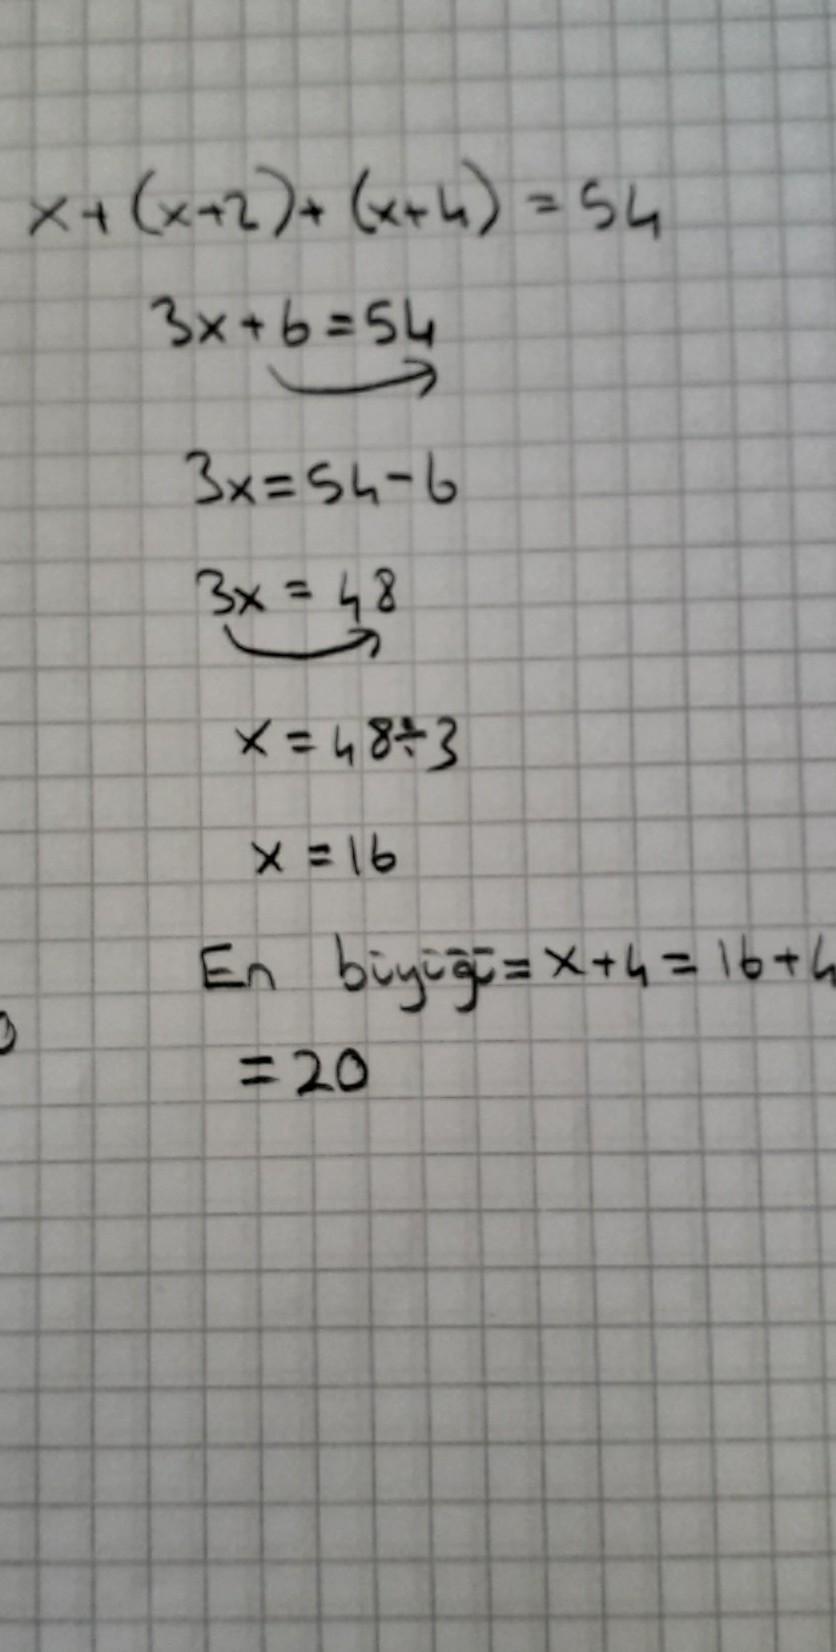 x+(x+2)+(x+4)=54
3x+6=54
3x=54-6
3x=48
x=48÷3
x=16
En büyüğü=x+4=16+4
=20